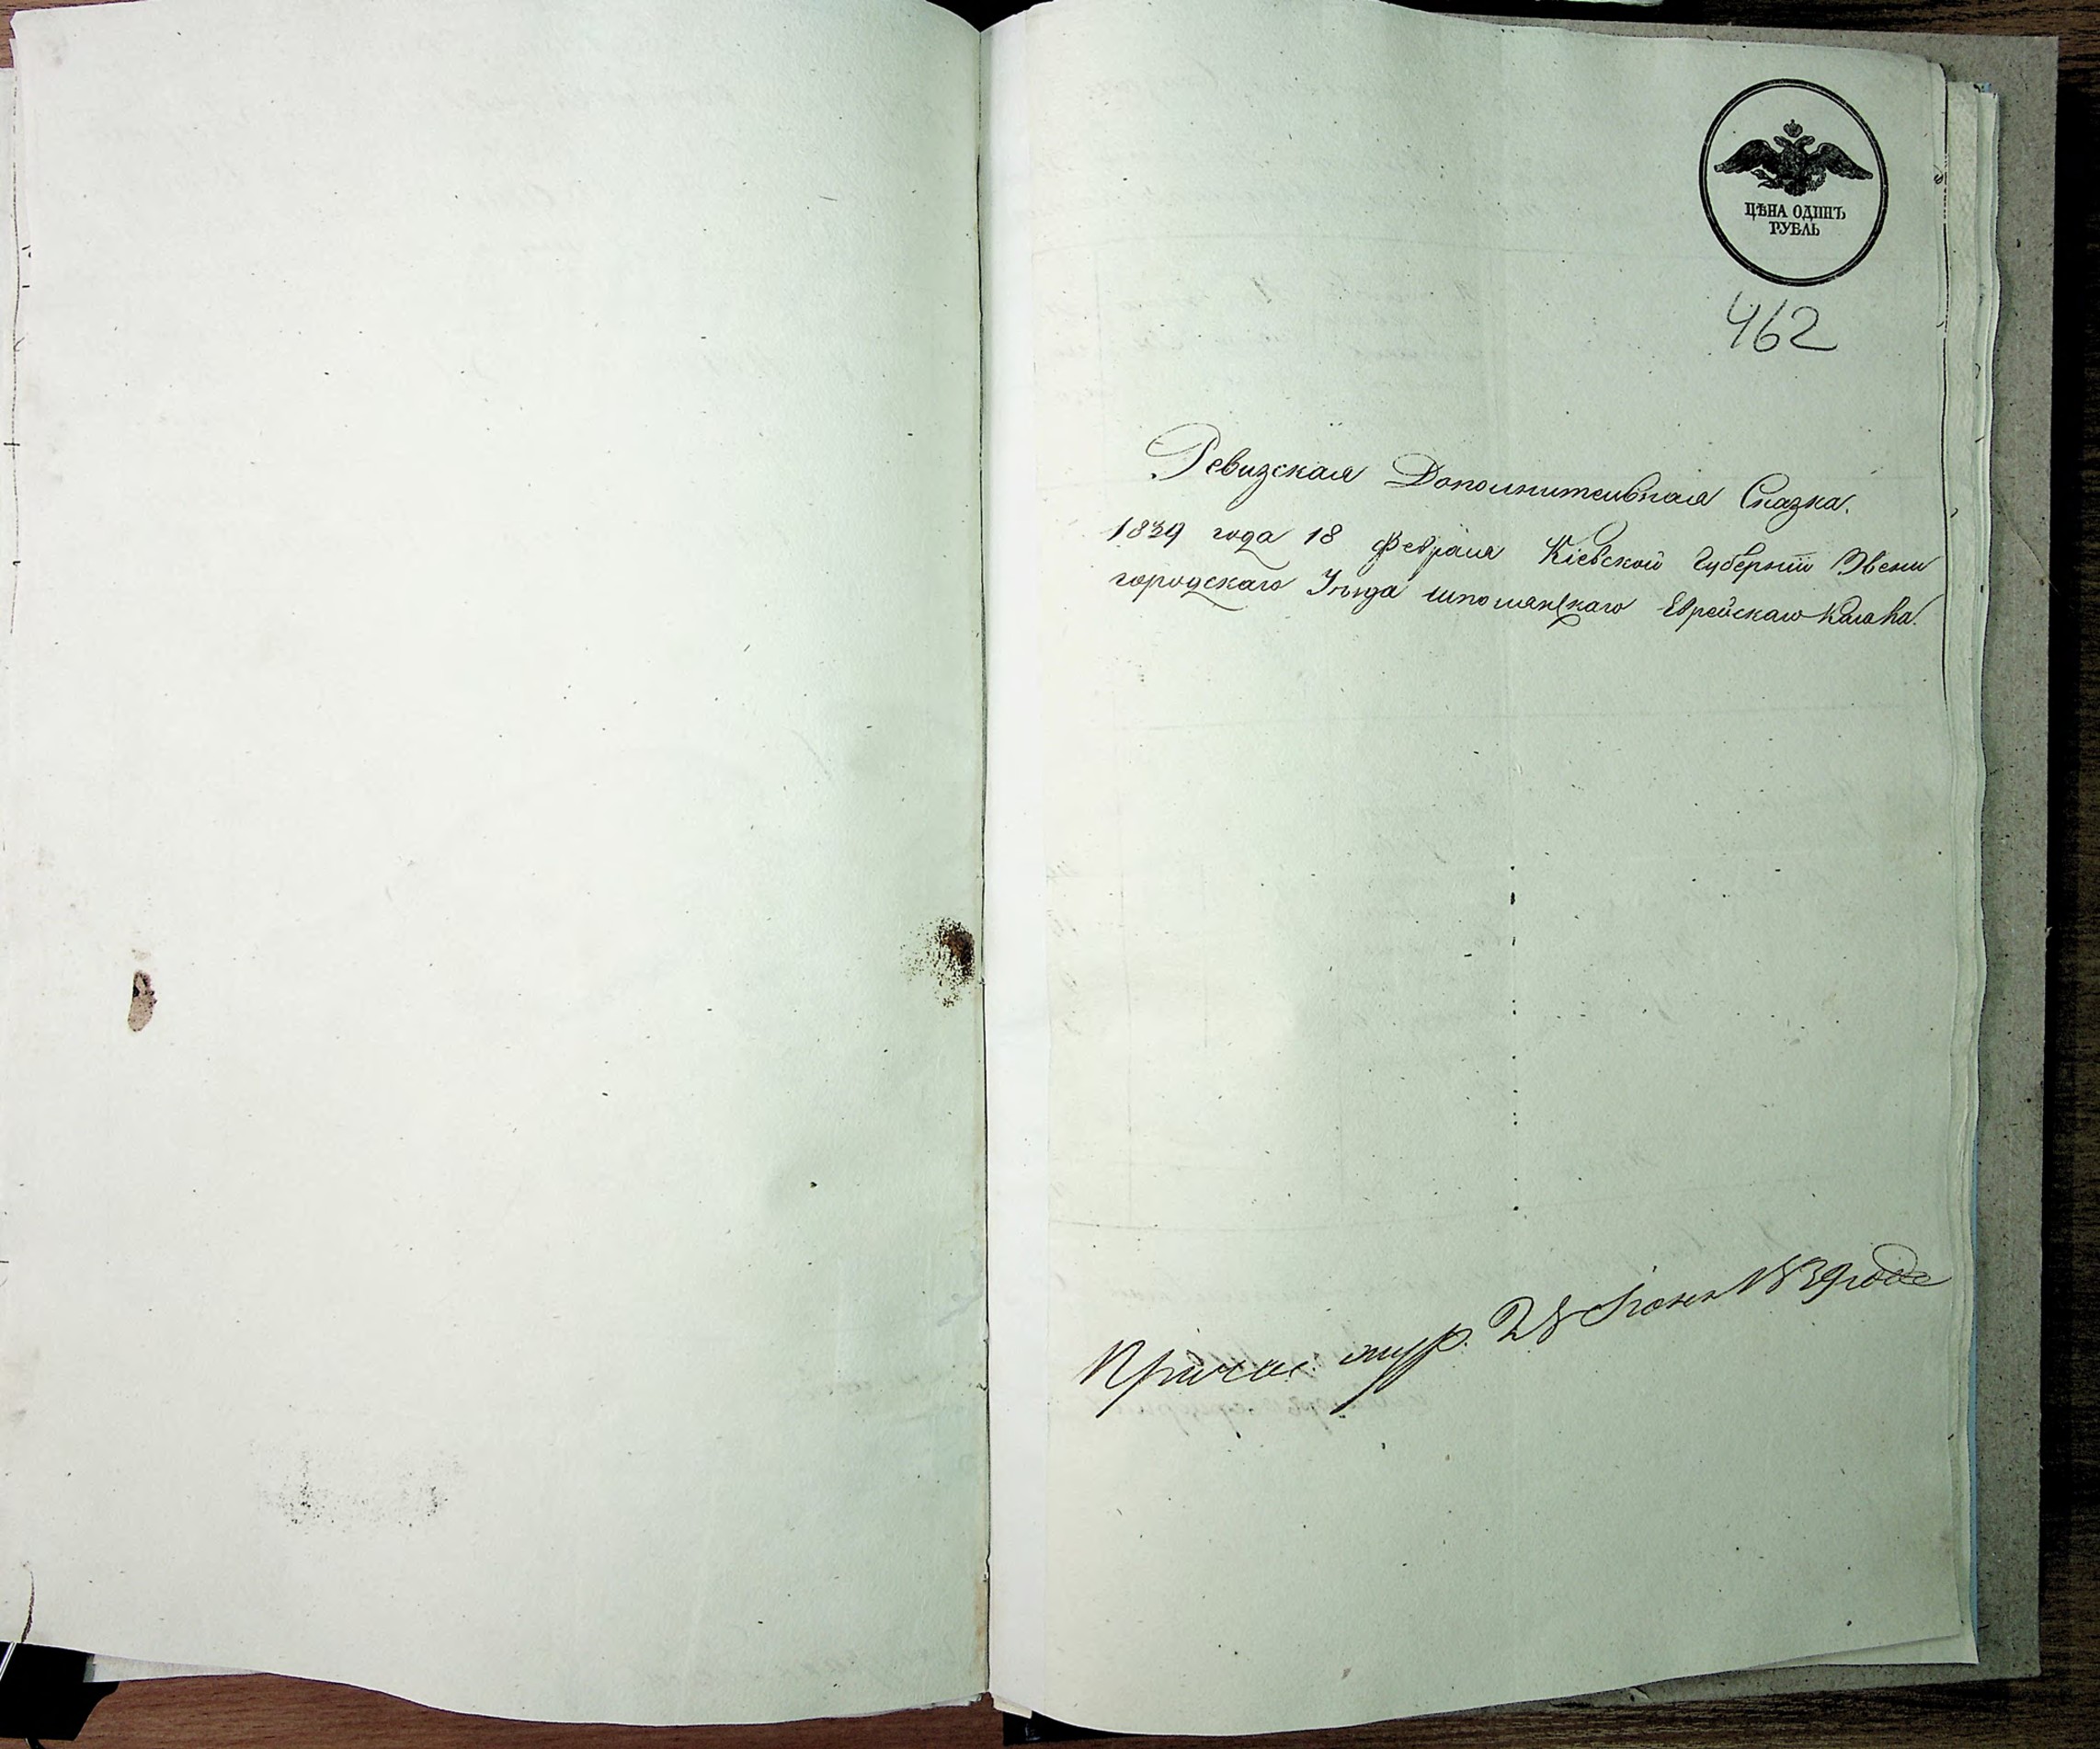 ЦѢНА ОДИНЪ
РУБЛЬ
462
Ревизская Дополнительная Сказка.
1839 года 18 февраля Кіевской Губерніи Звени
городскаго Уѣзда шполянскаго Еврейскаго Кагала.
28 Іюня 1839 года